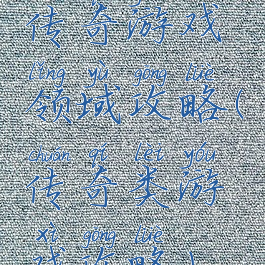 传奇游戏
lǐng yù gōng lüè
领域攻略(
chuán qí lèi yóu
传奇类游
xì gōng lüè
戏攻略)